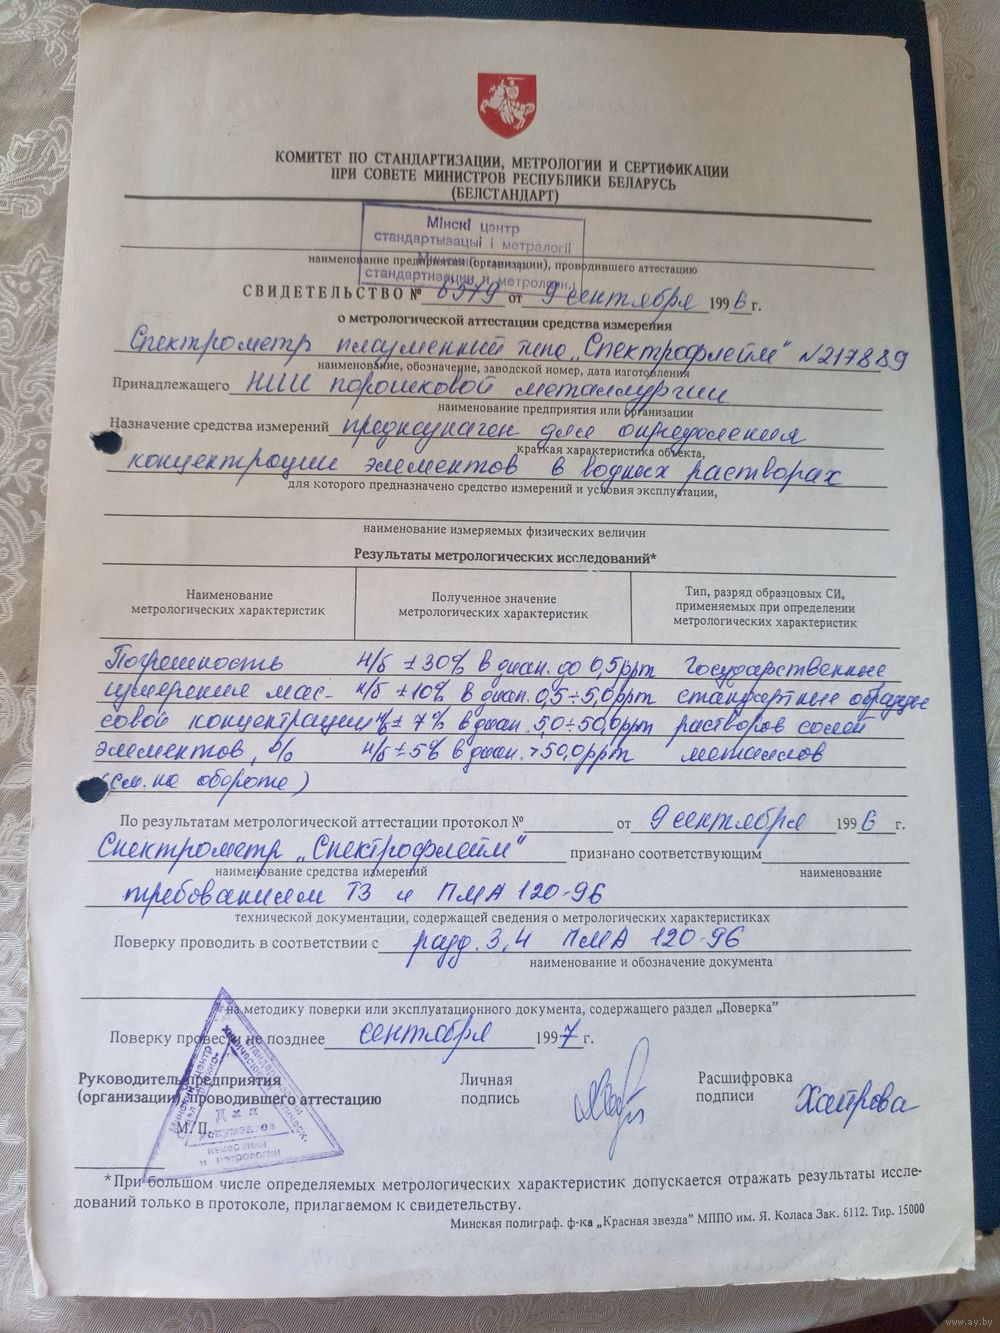 КОМИТЕТ ПО СТАНДАРТИЗАЦИИ, МЕТРОЛОГИИ И СЕРТИФИКАЦИИ
ПРИ СОВЕТЕ МИНИСТРОВ РЕСПУБЛИКИ БЕЛАРУСЬ
(БЕЛСТАНДАРТ)
Мінскі цэнтр
стандартызацыі і метралогіі
стандартизации и метрологии
наименование предприятия (организации), проводившего аттестацию
СВИДЕТЕЛЬСТВО № 6379 от 9 сентября 1996 г.
о метрологической аттестации средства измерения
Спектрометр пламенный типа „Спектрофлейм" N217889
наименование, обозначение, заводской номер, дата изготовления
Принадлежащего НИИ порошковой металлургии
наименование предприятия или организации
Назначение средства измерений предназначен для определения
краткая характеристика объекта,
концентрации элементов в водных растворах
для которого предназначено средство измерений и условия эксплуатации,
наименование измеряемых физических величин
Результаты метрологических исследований*
Наименование метрологических характеристик
Полученное значение метрологических характеристик
Тип, разряд образцовых СИ, применяемых при определении метрологических характеристик
Погрешность н/б ± 30% в диап. до 0,5ppm Государственные
измерения мас- н/б ± 10% в диап. 0,5÷5,0ppm стандартные образцы
совой концентрации н/б ± 7% в диап. 5,0÷50,0ppm растворов солей
элементов, % н/б ± 5% в диап. >50,0ppm металлов
(см. на обороте)
По результатам метрологической аттестации протокол № от 9 сентября 1996 г.
Спектрометр „Спектрофлейм" признано соответствующим
наименование средства измерений наименование
требованиям ТЗ и ПМА 120-96
технической документации, содержащей сведения о метрологических характеристиках
Поверку проводить в соответствии с разд. 3,4 ПМА 120-96
наименование и обозначение документа
на методику поверки или эксплуатационного документа, содержащего раздел „Поверка"
Поверку провести не позднее сентября 1997 г.
Руководитель предприятия
(организации), проводившего аттестацию
Личная подпись
Расшифровка подписи
Хаирова
М. П.
Для
документов
*При большом числе определяемых метрологических характеристик допускается отражать результаты иссле-
дований только в протоколе, прилагаемом к свидетельству.
Минская полиграф. ф-ка „Красная звезда" МППО им. Я. Коласа Зак. 6112. Тир. 15000
www.ay.by